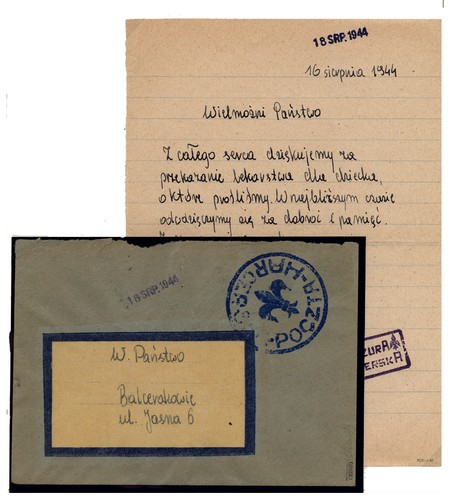 18 SRP. 1944
16 sierpnia 1944
Wielmożni Państwo
Z całego serca dziękujemy za
przekazanie lekarstwa dla dziecka,
o które prosiliśmy. W najbliższym czasie
odwdzięczymy się za dobroć i pamięć.
18 SRP. 1944
POCZTA HARCERSKA
W. Państwo
Balcerakowie
ul. Jasna 6
ZURA
ERSKA